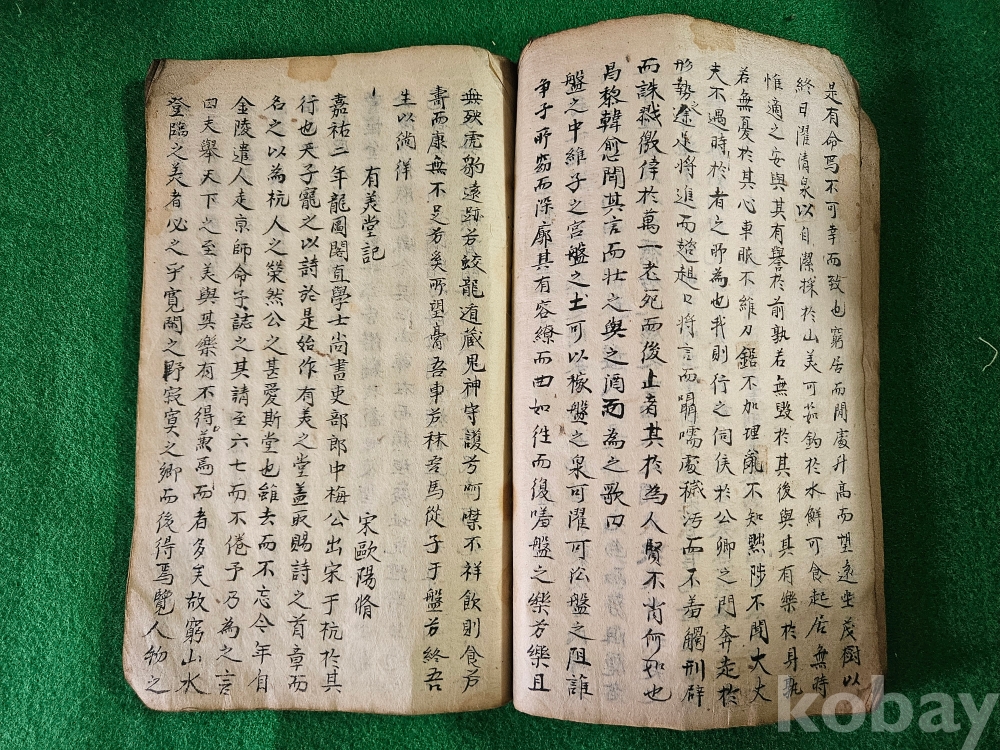 是有命焉不可幸而致也窮居而閒處升高而望遠坐茂樹以
終日濯清泉以自潔採於山美可茹釣於水鮮可食起居無時
惟適之安與其有譽於前孰若無毀於其後與其有樂於身孰
若無憂於其心車服不維刀鋸不加理亂不知黜陟不聞大大
夫不遇時於者之所為也我則行之伺候於公卿之門奔走於
形勢之途足將進而趑趄口將言而囁嚅處穢污而不羞觸刑辟
而誅戮徼倖於萬一老死而後止者其於為人賢不肖何如也
昌黎韓愈聞其言而壯之與之酒而為之歌曰
盤之中維子之宮盤之土可以稼盤之泉可濯可沿盤之阻誰
爭子所窈而深廓其有容繚而曲如往而復嗟盤之樂兮樂且
無殃虎豹遠跡兮蛟龍遁藏鬼神守護兮呵噤不祥飲則食兮
壽而康無不足兮奚所望膏吾車兮秣吾馬從子于盤兮終吾
生以徜徉
有美堂記 宋歐陽脩
嘉祐二年龍圖閣直學士尚書吏部郎中梅公出宋于杭於其
行也天子寵之以詩於是始作有美之堂蓋取賜詩之首章而
名之以為杭人之榮然公之甚愛斯堂也雖去而不忘今年自
金陵遣人走京師命予誌之其請至六七而不倦予乃為之言
曰夫舉天下之至美與其樂有不得兼焉而者多矣故窮山水
登臨之美者必之乎寬閒之野寂寞之鄉而後得焉覽人物之
kobay